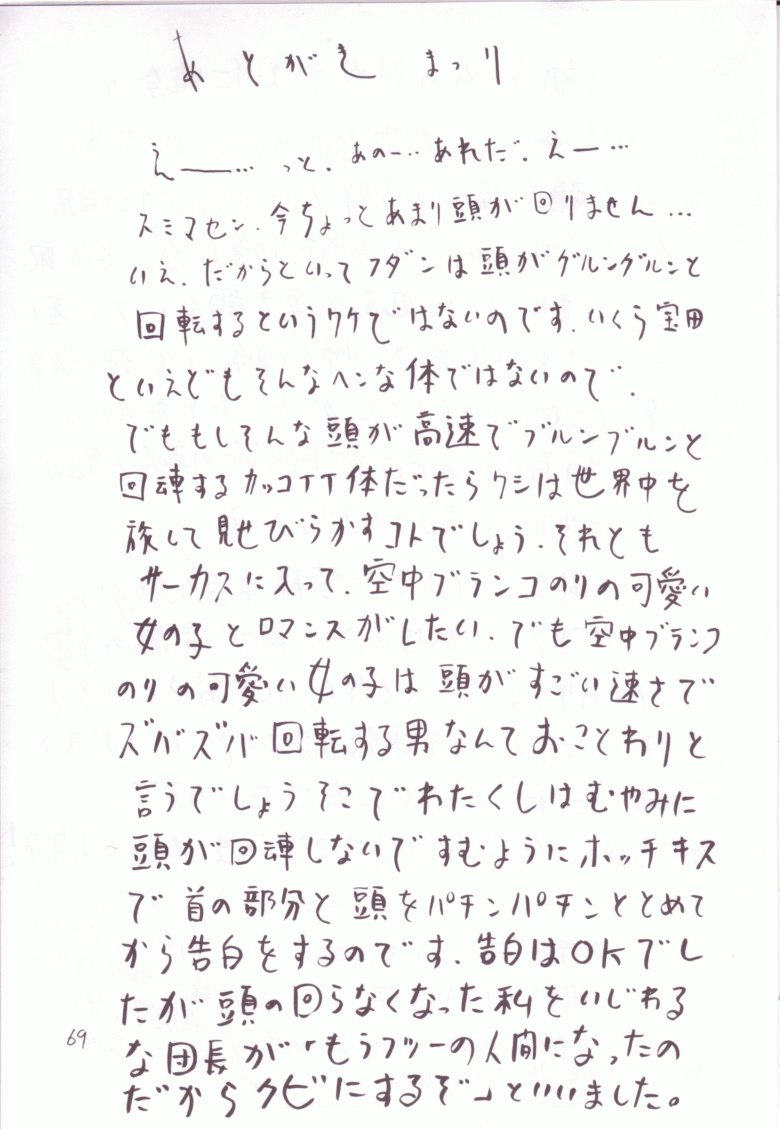 あとがき まつり
えー…っと．あのー…あれだ．えー…
スミマセン．今ちょっとあまり頭が回りません…
いえ．だからといってフダンは頭がグルングルンと
回転するというワケではないのです．いくら宝田
といえどもそんなヘンな体ではないので．
でももしそんな頭が高速でブルンブルンと
回転するカッコイイ体だったらワシは世界中を
旅して見せびらかすコトでしょう．それとも
サーカスに入って．空中ブランコのりの可愛い
女の子とロマンスがしたい．でも空中ブランコ
のりの可愛い女の子は頭がすごい速さで
ズバズバ回転する男なんておことわりと
言うでしょうそこでわたくしはむやみに
頭が回転しないですむようにホッチキス
で首の部分と頭をパチンパチンととめて
から告白をするのです．告白はOKでし
たが頭の回らなくなった私をいじわる
な団長が「もうフツーの人間になったの
だからクビにするぞ」といいました。
69